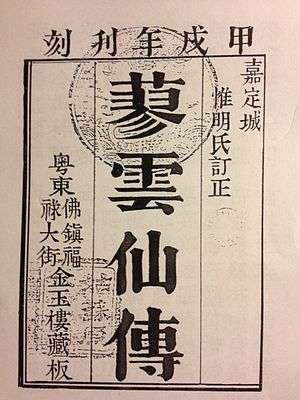 甲戌年刊刻
嘉定城
惟明氏訂正
蓼雲仙傳
粤東佛鎮福祿大街金玉樓藏板